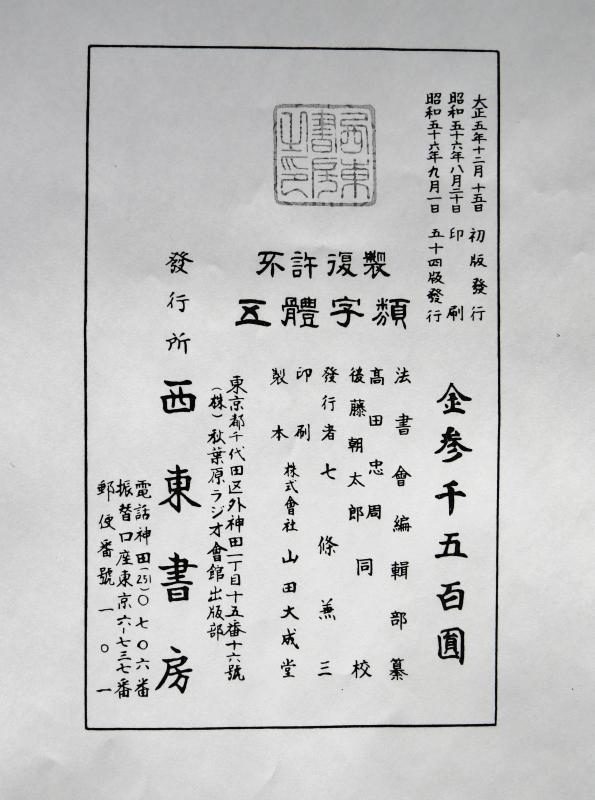 大正五年十二月十五日 初版發行
昭和五十六年八月二十日 印刷
昭和五十六年九月一日 五十四版發行
金参千五百圓
西東書房之印
不許復製
五體字類
法書會編輯部纂
高田忠周
後藤朝太郎 同校
發行者 七條兼三
印刷
製本 株式會社 山田大成堂
東京都千代田区外神田一丁目十五番十六號
(株)秋葉原ラジオ會館出版部
發行所 西東書房
電話神田(251)〇七〇六番
振替口座東京六-七三七番
郵便番號一〇一